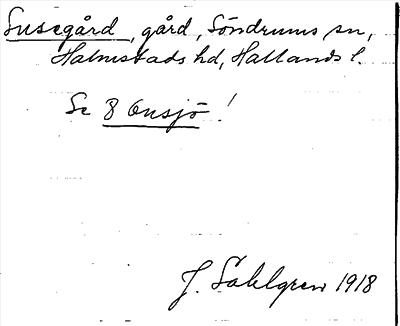 Susegård, gård, Söndrums sn,
Halmstads hd, Hallands l.
Se 8 Onsjö!
J. Sahlgren 1918